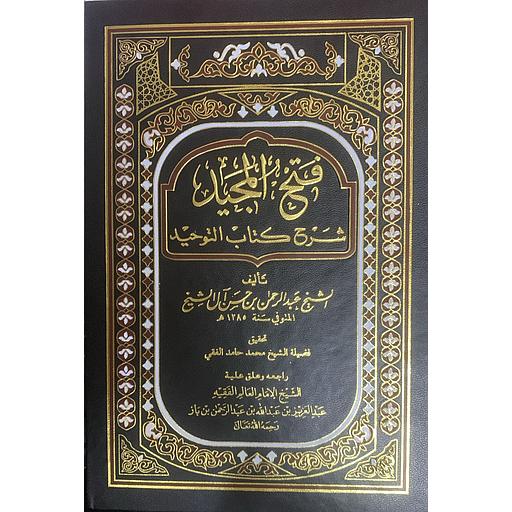 فتح المجيد
شرح كتاب التوحيد
تأليف
الشيخ عبد الرحمن بن حسن آل الشيخ
المتوفي سنة ١٢٨٥ هـ
تحقيق
فضيلة الشيخ محمد حامد الفقي
راجعه وعلق علية
الشيخ الإمام العالم الفقيه
عبد العزيز بن عبد الله بن عبد الرحمن بن باز
رحمه الله تعالى